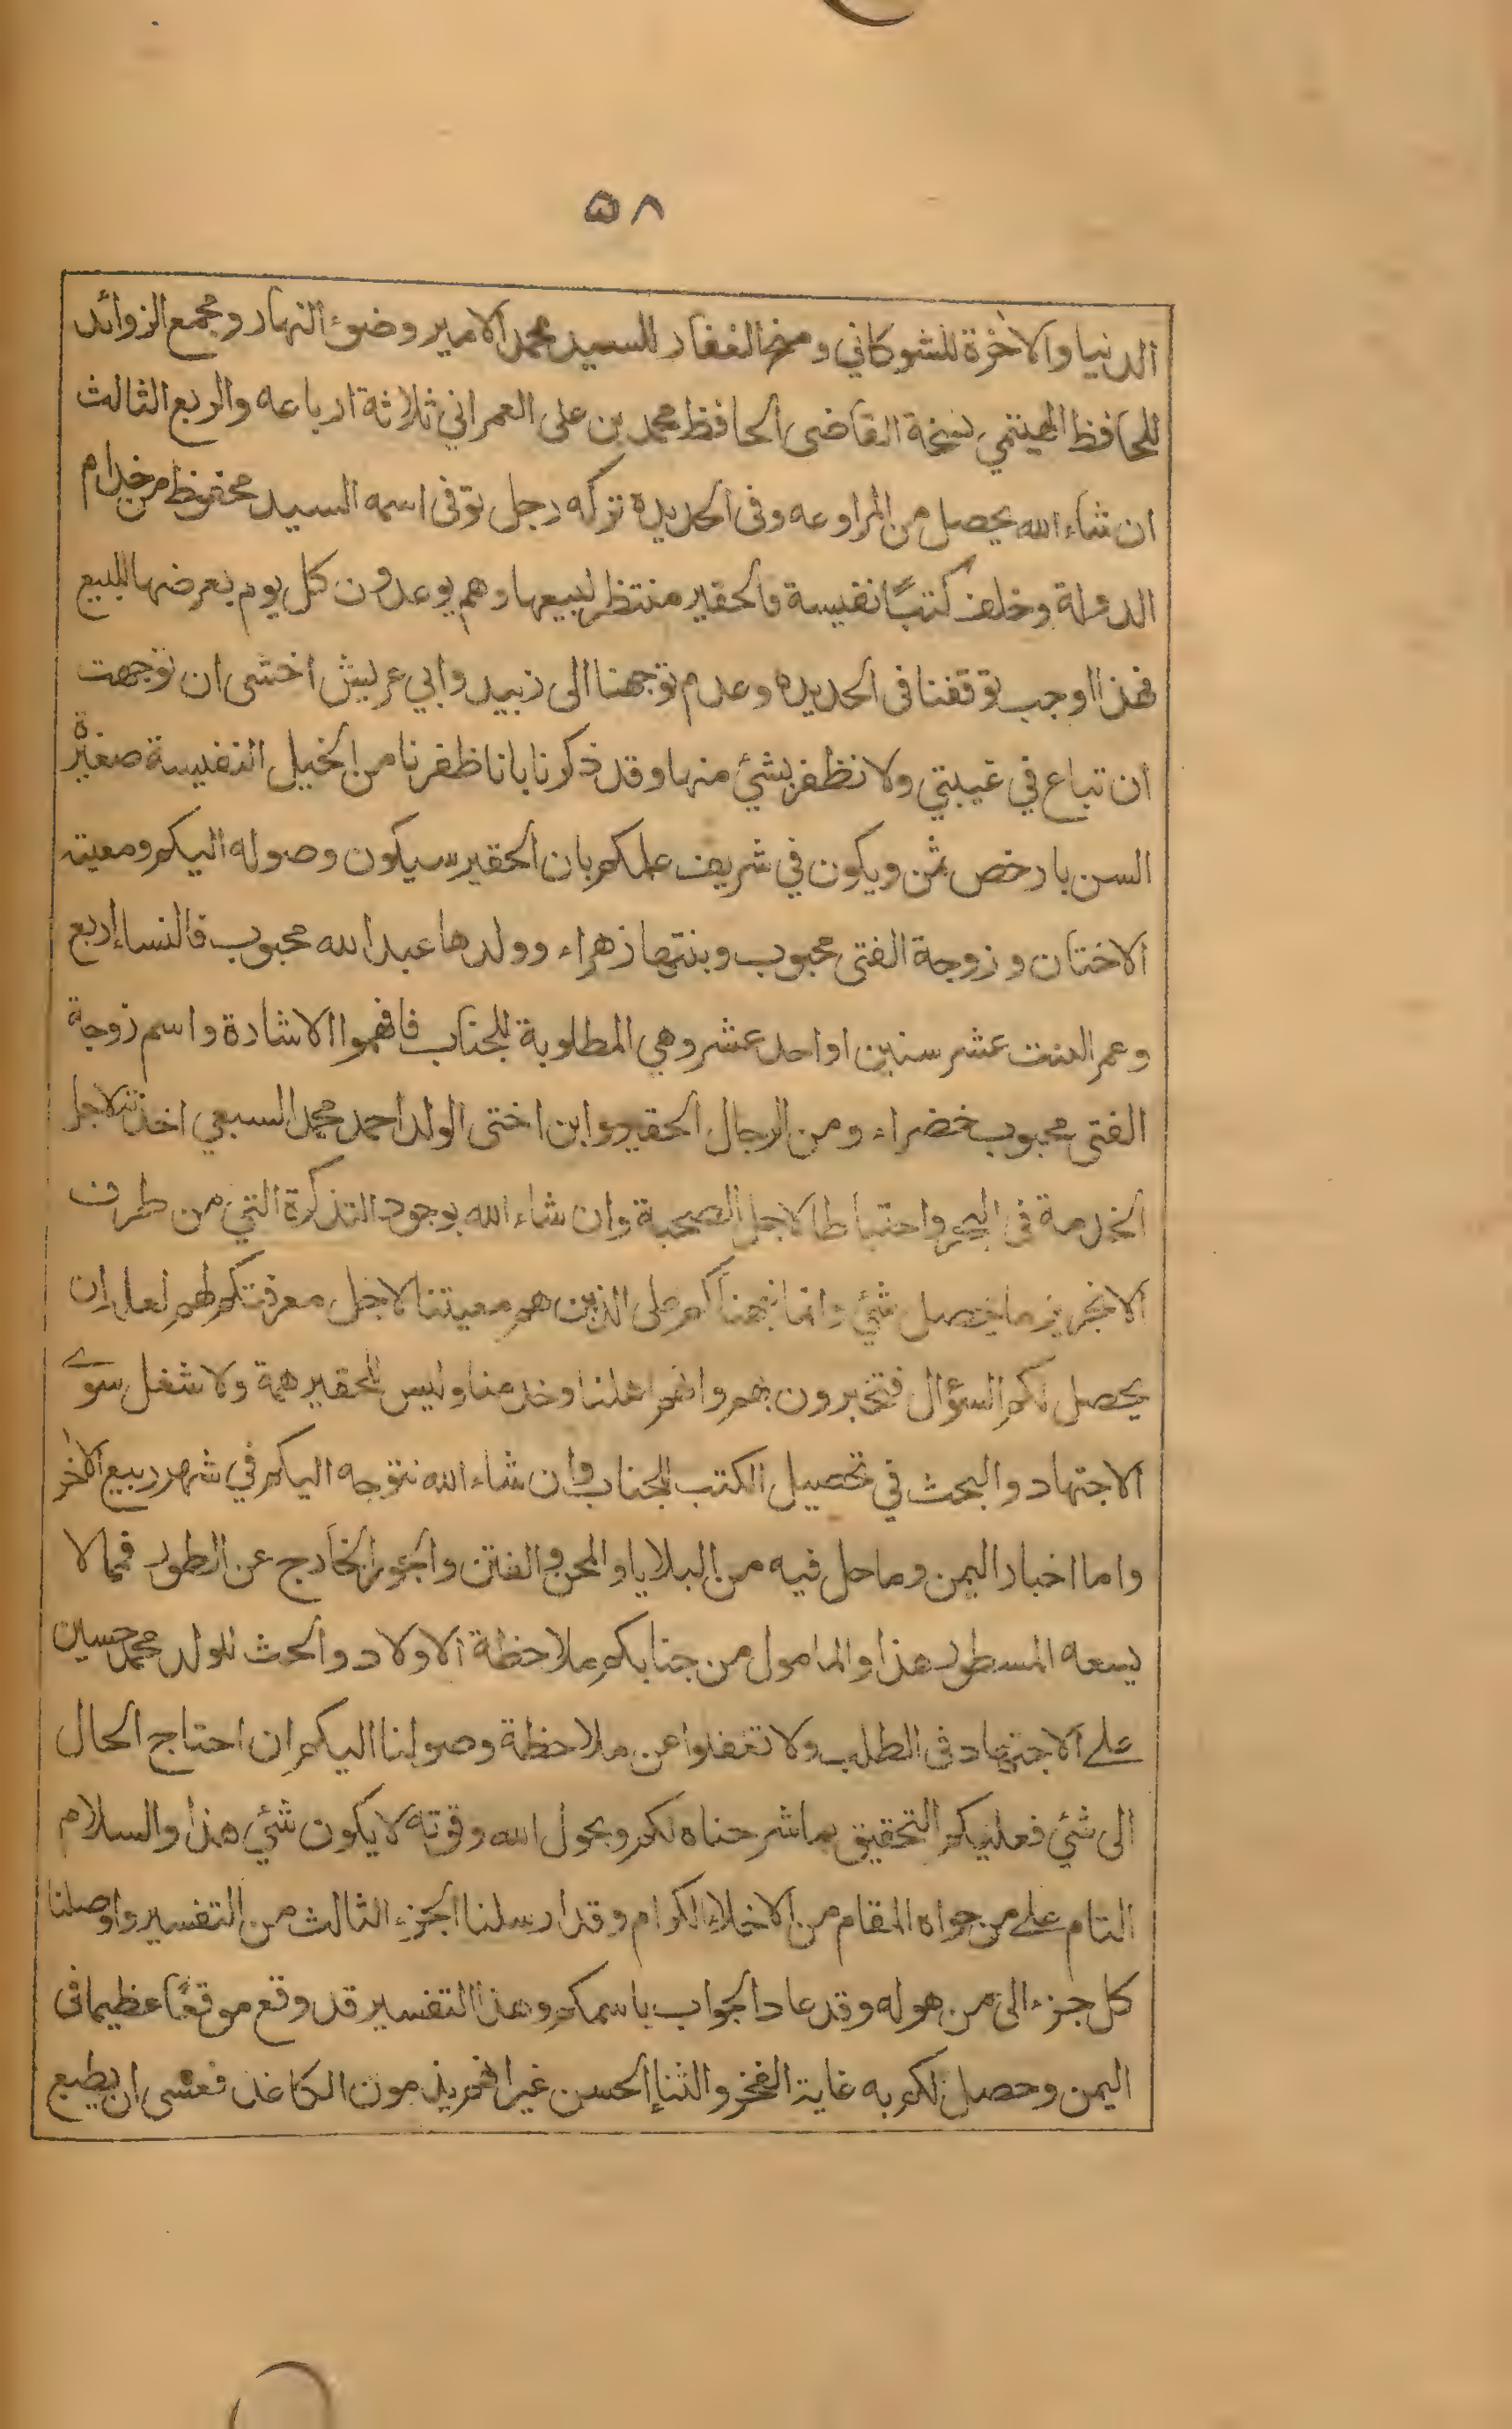 ۵۸
الدنيا والاٰخرة للشوكاني ومنح الغفار للسيد محمد الامير وضوء النهار ومجمع الزوائد
للحافظ الهيتمي نسخة القاضى الحافظ محمد بن على العمراني ثلاثة ارباعه والربع الثالث
ان شاء الله يحصل من المراوعه وفى الحديدة تركه رجل توفى اسمه السيد محفوظ من خدام
الدولة وخلف كتبًا نفيسة فالحقير منتظر لبيعها وهم يوعدون كل يوم بعرضها للبيع
فهذا اوجب توقفنا فى الحديده وعدم توجهنا الى زبيد وابي عريش اخشى ان توجهت
ان تباع في غيبتي ولا نظفر بشئ منها وقد ذكرنا بانا ظفرنا من الخيل النفيسة صغيرة
السن بارخص ثمن ويكون في شريف علمكم بان الحقير سيكون وصوله اليكم ومعيته
الاختان وزوجة الفتى محبوب وبنتها زهراء وولدها عبد الله محبوب فالنساء اربع
وعمر البنت عشر سنين او احد عشر وهي المطلوبة للجناب فافهموا الاشارة واسم زوجة
الفتى محبوب خضراء ومن الرجال الحقير وابن اختى الولد احمد محمد السبعي اخذته لاجل
الخدمة فى البحر واحتياطا لاجل الصحبة وان شاء الله بوجود التذكرة التي من طرف
الانجريز ما يحصل شئ وانما نبهناكم على الذين هم معيتنا لاجل معرفتكم لهم لعل ان
يحصل لكم السؤال فتخبرون بهم وانهم اهلنا وخدمنا وليس للحقير همة ولا شغل سوے
الاجتهاد والبحث في تحصيل الكتب للجناب وان شاء الله نتوجه اليكم في شهر ربيع الاٰخر
واما اخبار اليمن وما حل فيه من البلايا والمحن والفتن والجور الخارج عن الطور فمما لا
يسعه المسطور هذا والمامول من جنابكم ملاحظة الاولاد والحث للولد محمد حسين
علے الاجتهاد فى الطلب ولا تغفلوا عن ملاحظة وصولنا اليكم ان احتاج الحال
الى شئ فعليكم التحقيق بما شرحناه لكم وبحول الله وقوته لا يكون شئ هذا والسلام
التام علے من حواه المقام من الاخلاء الكرام وقد ارسلنا الجزء الثالث من التفسير واوصلنا
كل جزء الى من هو له وقد عاد الجواب باسمكم وهذا التفسير قد وقع موقعًا عظيما فى
اليمن وحصل لكم به غاية الفخر والثناء الحسن غير انهم يذمون الكاغد فعسى ان يطبع